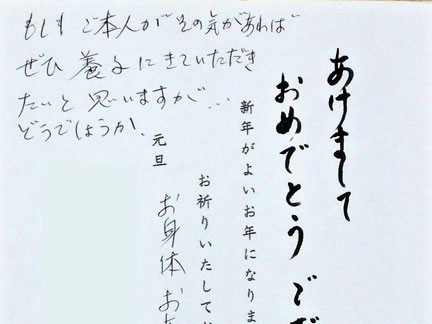 もしも ご本人が その気があれば
ぜひ 養子にきていただき
たいと 思いますが…
どうでしょうか。
あけまして
おめでとう ござ
新年がよいお年になりま
お祈りいたしてお
元旦
お身体 お